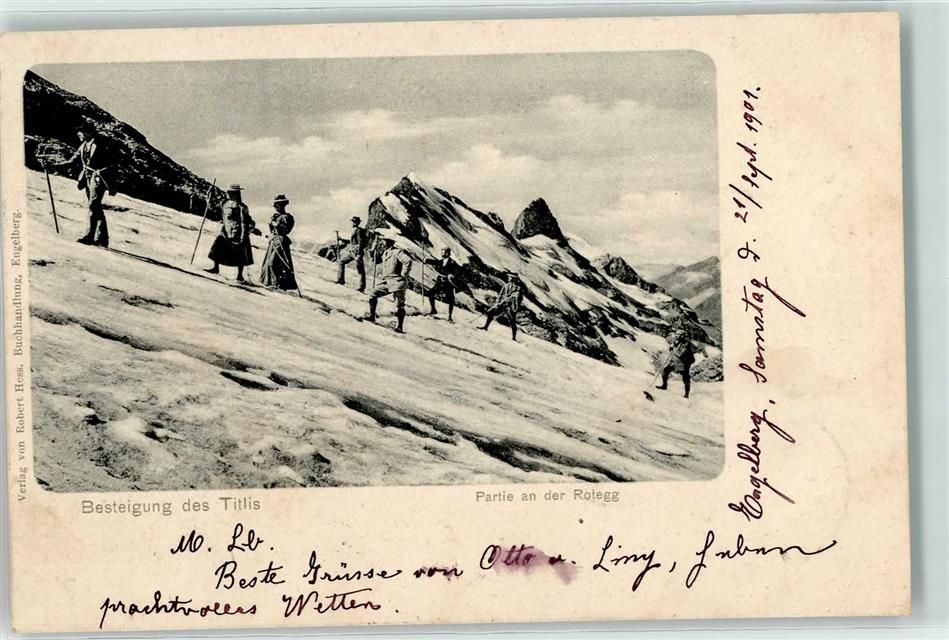 Verlag von Robert Hess, Buchhandlung, Engelberg.
Besteigung des Titlis
Partie an der Rotegg
Engelberg, Samstag d. 21/Sept. 1901.
M. Lb.
Beste Grüsse von Otto u. Liny, haben
prachtvolles Wetter.